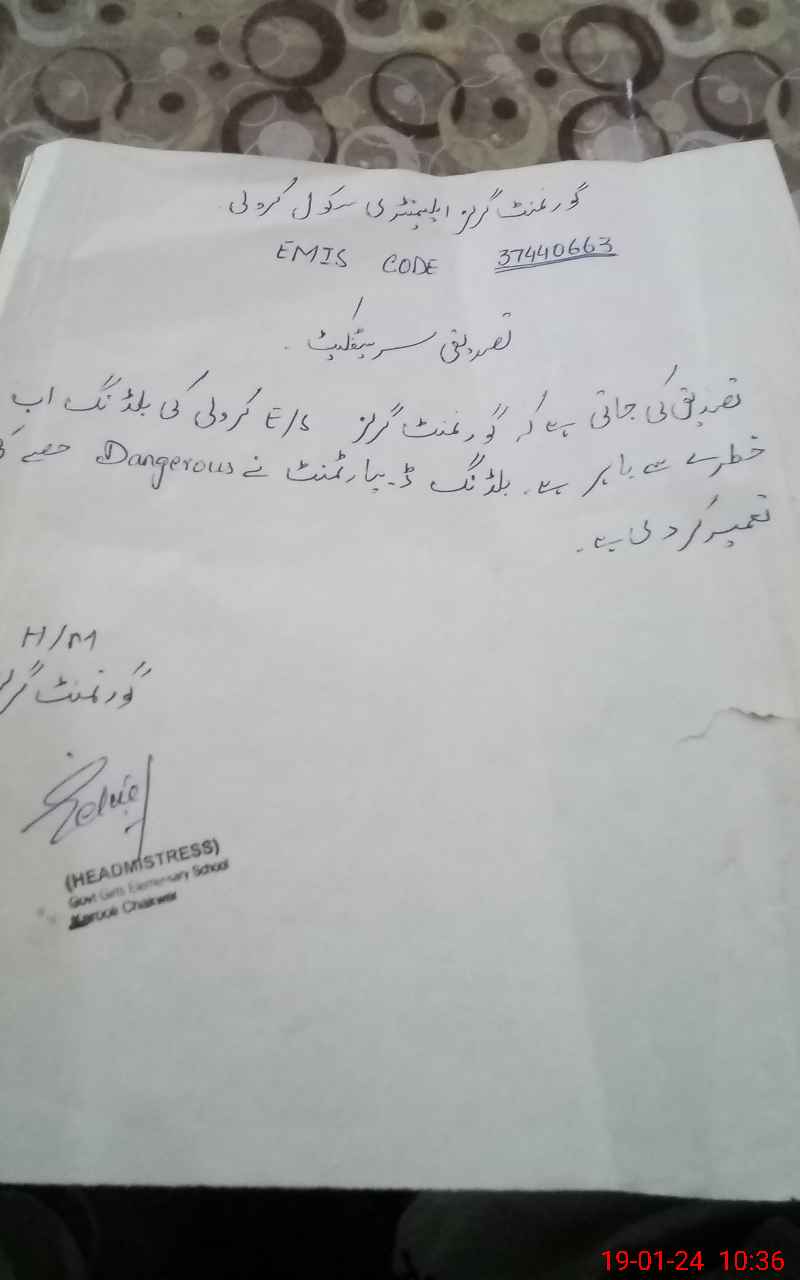 گورنمنٹ گرلز ایلیمنٹری سکول کرولی
EMIS CODE 37440663
تصدیقی سرٹیفکیٹ ۔
تصدیق کی جاتی ہے کہ گورنمنٹ گرلز E/S کرولی کی بلڈنگ اب
خطرے سے باہر ہے۔ بلڈنگ ڈیپارٹمنٹ نے Dangerous حصے کی
تعمیر کر دی ہے۔
H/M
گورنمنٹ گرلز
(HEADMISTRESS)
Govt Girls Elementary School
Chakwal
19-01-24 10:36